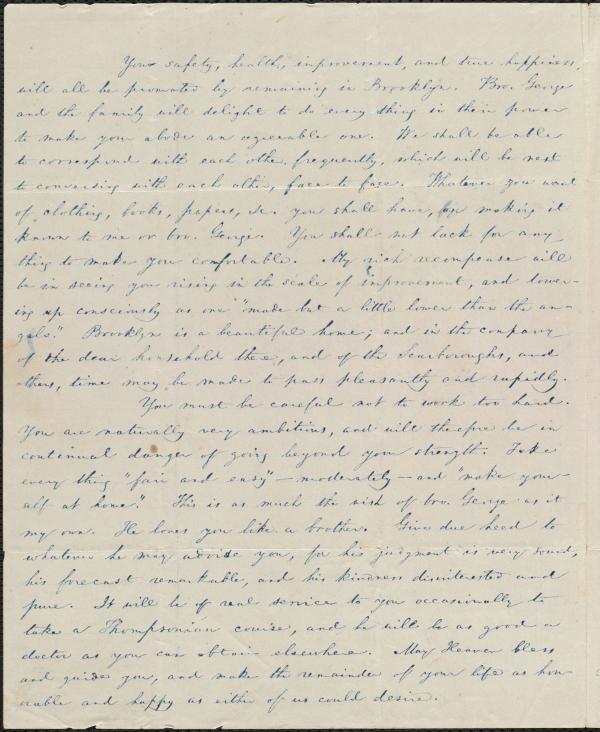 Your safety, health, improvement, and true happiness,
will all be promoted by remaining in Brooklyn. Bro. George
and the family will delight to do every thing in their power
to make your abode an agreeable one. We shall be able
to correspond with each other, frequently, which will be next
to conversing with each other, face to face. Whatever you want
of clothing, books, papers, &c. you shall have, by making it
known to me or bro. George. You shall not lack for any
thing to make you comfortable. My rich recompense will
be in seeing you rising in the scale of improvement, and tower-
ing up consciously as one "made but a little lower than the an-
gels." Brooklyn is a beautiful home; and in the company
of the dear household there, and of the Scarboroughs, and
others, time may be made to pass pleasantly and rapidly.
You must be careful not to work too hard.
You are naturally very ambitious, and will therefore be in
continual danger of going beyond your strength. Take
every thing "fair and easy" — moderately — and "make your-
self at home." This is as much the wish of bro. George as it
my own. He loves you like a brother. Give due heed to
whatever he may advise you, for his judgment is very sound,
his forecast remarkable, and his kindness disinterested and
pure. It will be of real service to you occasionally to
take a Thompsonian course, and he will be as good a
doctor as you can obtain elsewhere. May Heaven bless
and guide you, and make the remainder of your life as hon-
orable and happy as either of us could desire.